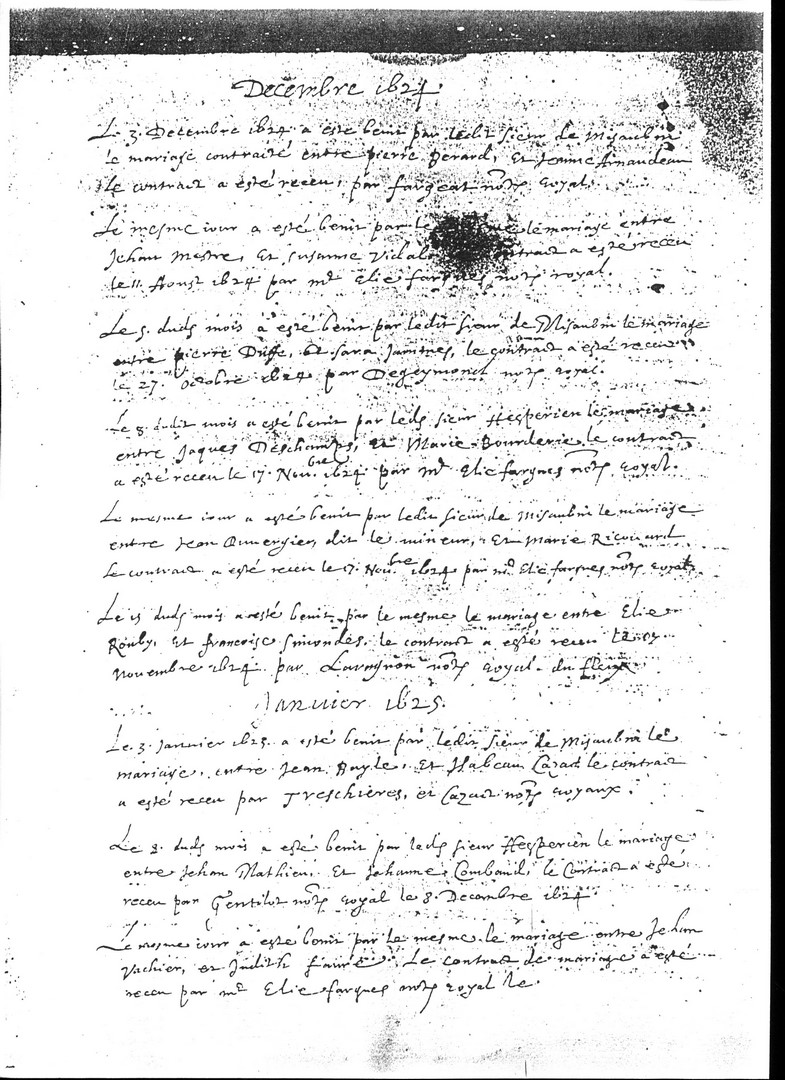 Decembre 1624
Le 3. Decembre 1624 a esté benit par ledit sieur de Misaubin
le mariage contraité entre pierre Berard, Et Jeanne Arnaudeau
le contract a esté receu, par fargeat notre royal.
Le mesme iour a esté benit par le le mariage entre
Jehan Mestre, Et Susanne Vidal a esté receu
le 11. Aoust 1624 par me Elie fargues notre royal.
Le 5. dudt mois a esté benit par ledit sieur de Misaubin le mariage
entre pierre Et Sara le contract a esté receu
le 27. Octobre 1624 par Degeymond notre royal.
Le 8. dudit mois a esté benit par ledt sieur Hesperien le mariage
entre Jaques Deschamps, Et Marie Bourderie, le contract
a esté receu le 17. Novbre 1624 par me Elie fargues notre royal.
Le mesme iour a esté benit par ledit sieur de Misaubin le mariage
entre Jean dit le mineur, Et Marie Ricouard
Le contract a esté receu le 17. Novbre 1624 par me Elie fargues notre royal
Le 15 dudt mois a esté benit par le mesme le mariage entre Elie
Rouby, Et francoise Simondes. le contract a esté receu le
Novembre 1624 par notre royal du fleix
Janvier 1625.
Le 3. Janvier 1625. a esté benit par ledit sieur de Misaubin le
mariage, entre Jean Et Isabeau le contract
a esté receu par Treschieres, et notre royaux.
Le 8. dudt mois a esté benit par ledt sieur Hesperien le mariage
entre Jehan Mathieu Et Jehanne le contract a esté
receu par Gentilot notre royal le 8. Decembre 1624.
Le mesme iour a esté benit par le mesme le mariage entre Jehan
Vachier, et Judith faure. Le contract de mariage a esté
receu par me Elie fargues notre royal le